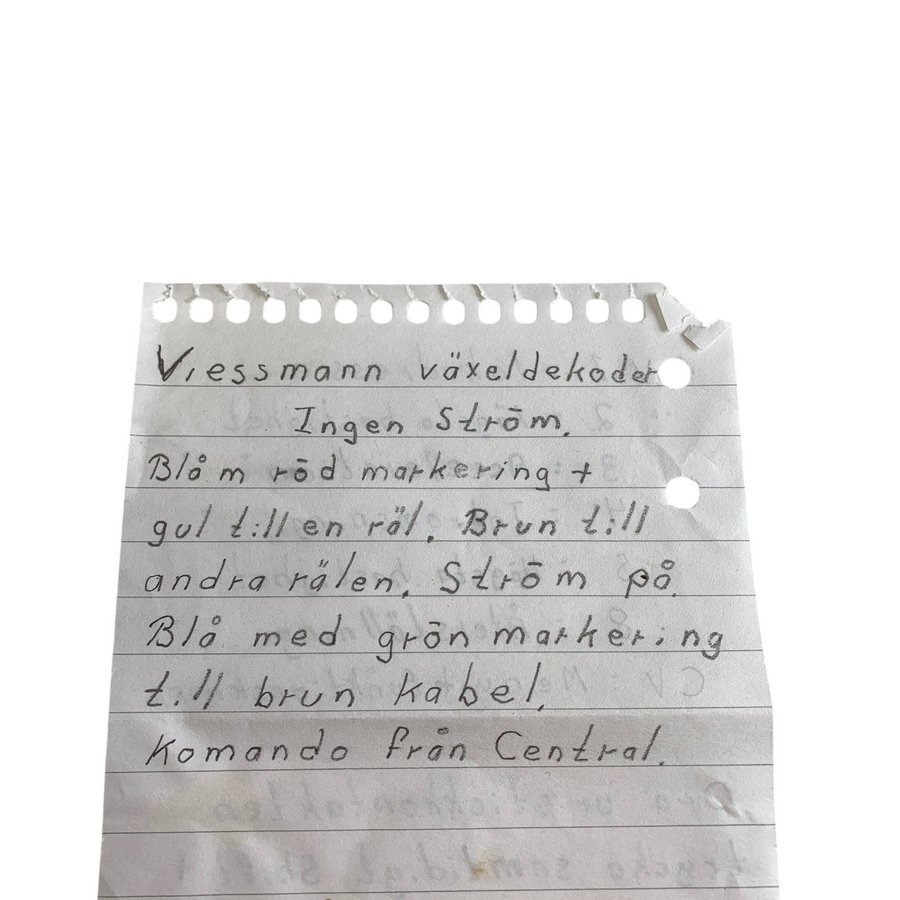 Viessmann växeldekoder
Ingen Ström.
Blå m röd markering +
gul till en räl. Brun till
andra rälen. Ström på.
Blå med grön markering
till brun kabel.
Komando från Central.